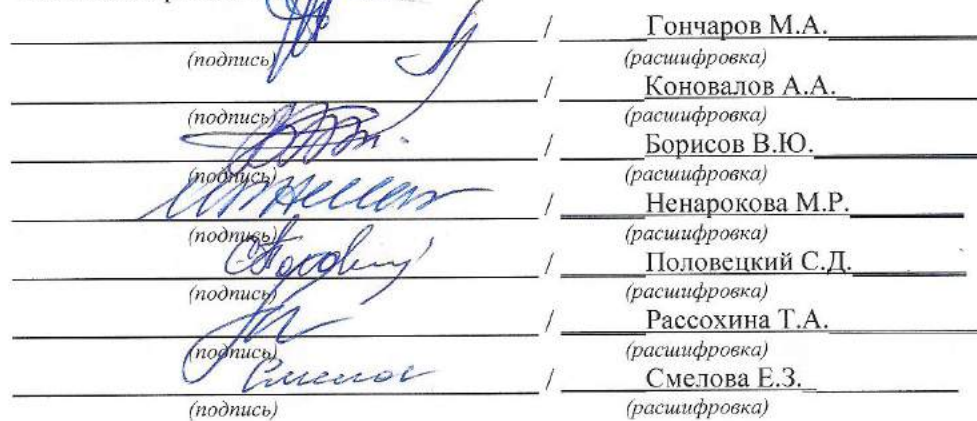 / Гончаров М.А.
(подпись) (расшифровка)
/ Коновалов А.А.
(подпись) (расшифровка)
/ Борисов В.Ю.
(подпись) (расшифровка)
/ Ненарокова М.Р.
(подпись) (расшифровка)
/ Половецкий С.Д.
(подпись) (расшифровка)
/ Рассохина Т.А.
(подпись) (расшифровка)
Смелов / Смелова Е.З.
(подпись) (расшифровка)